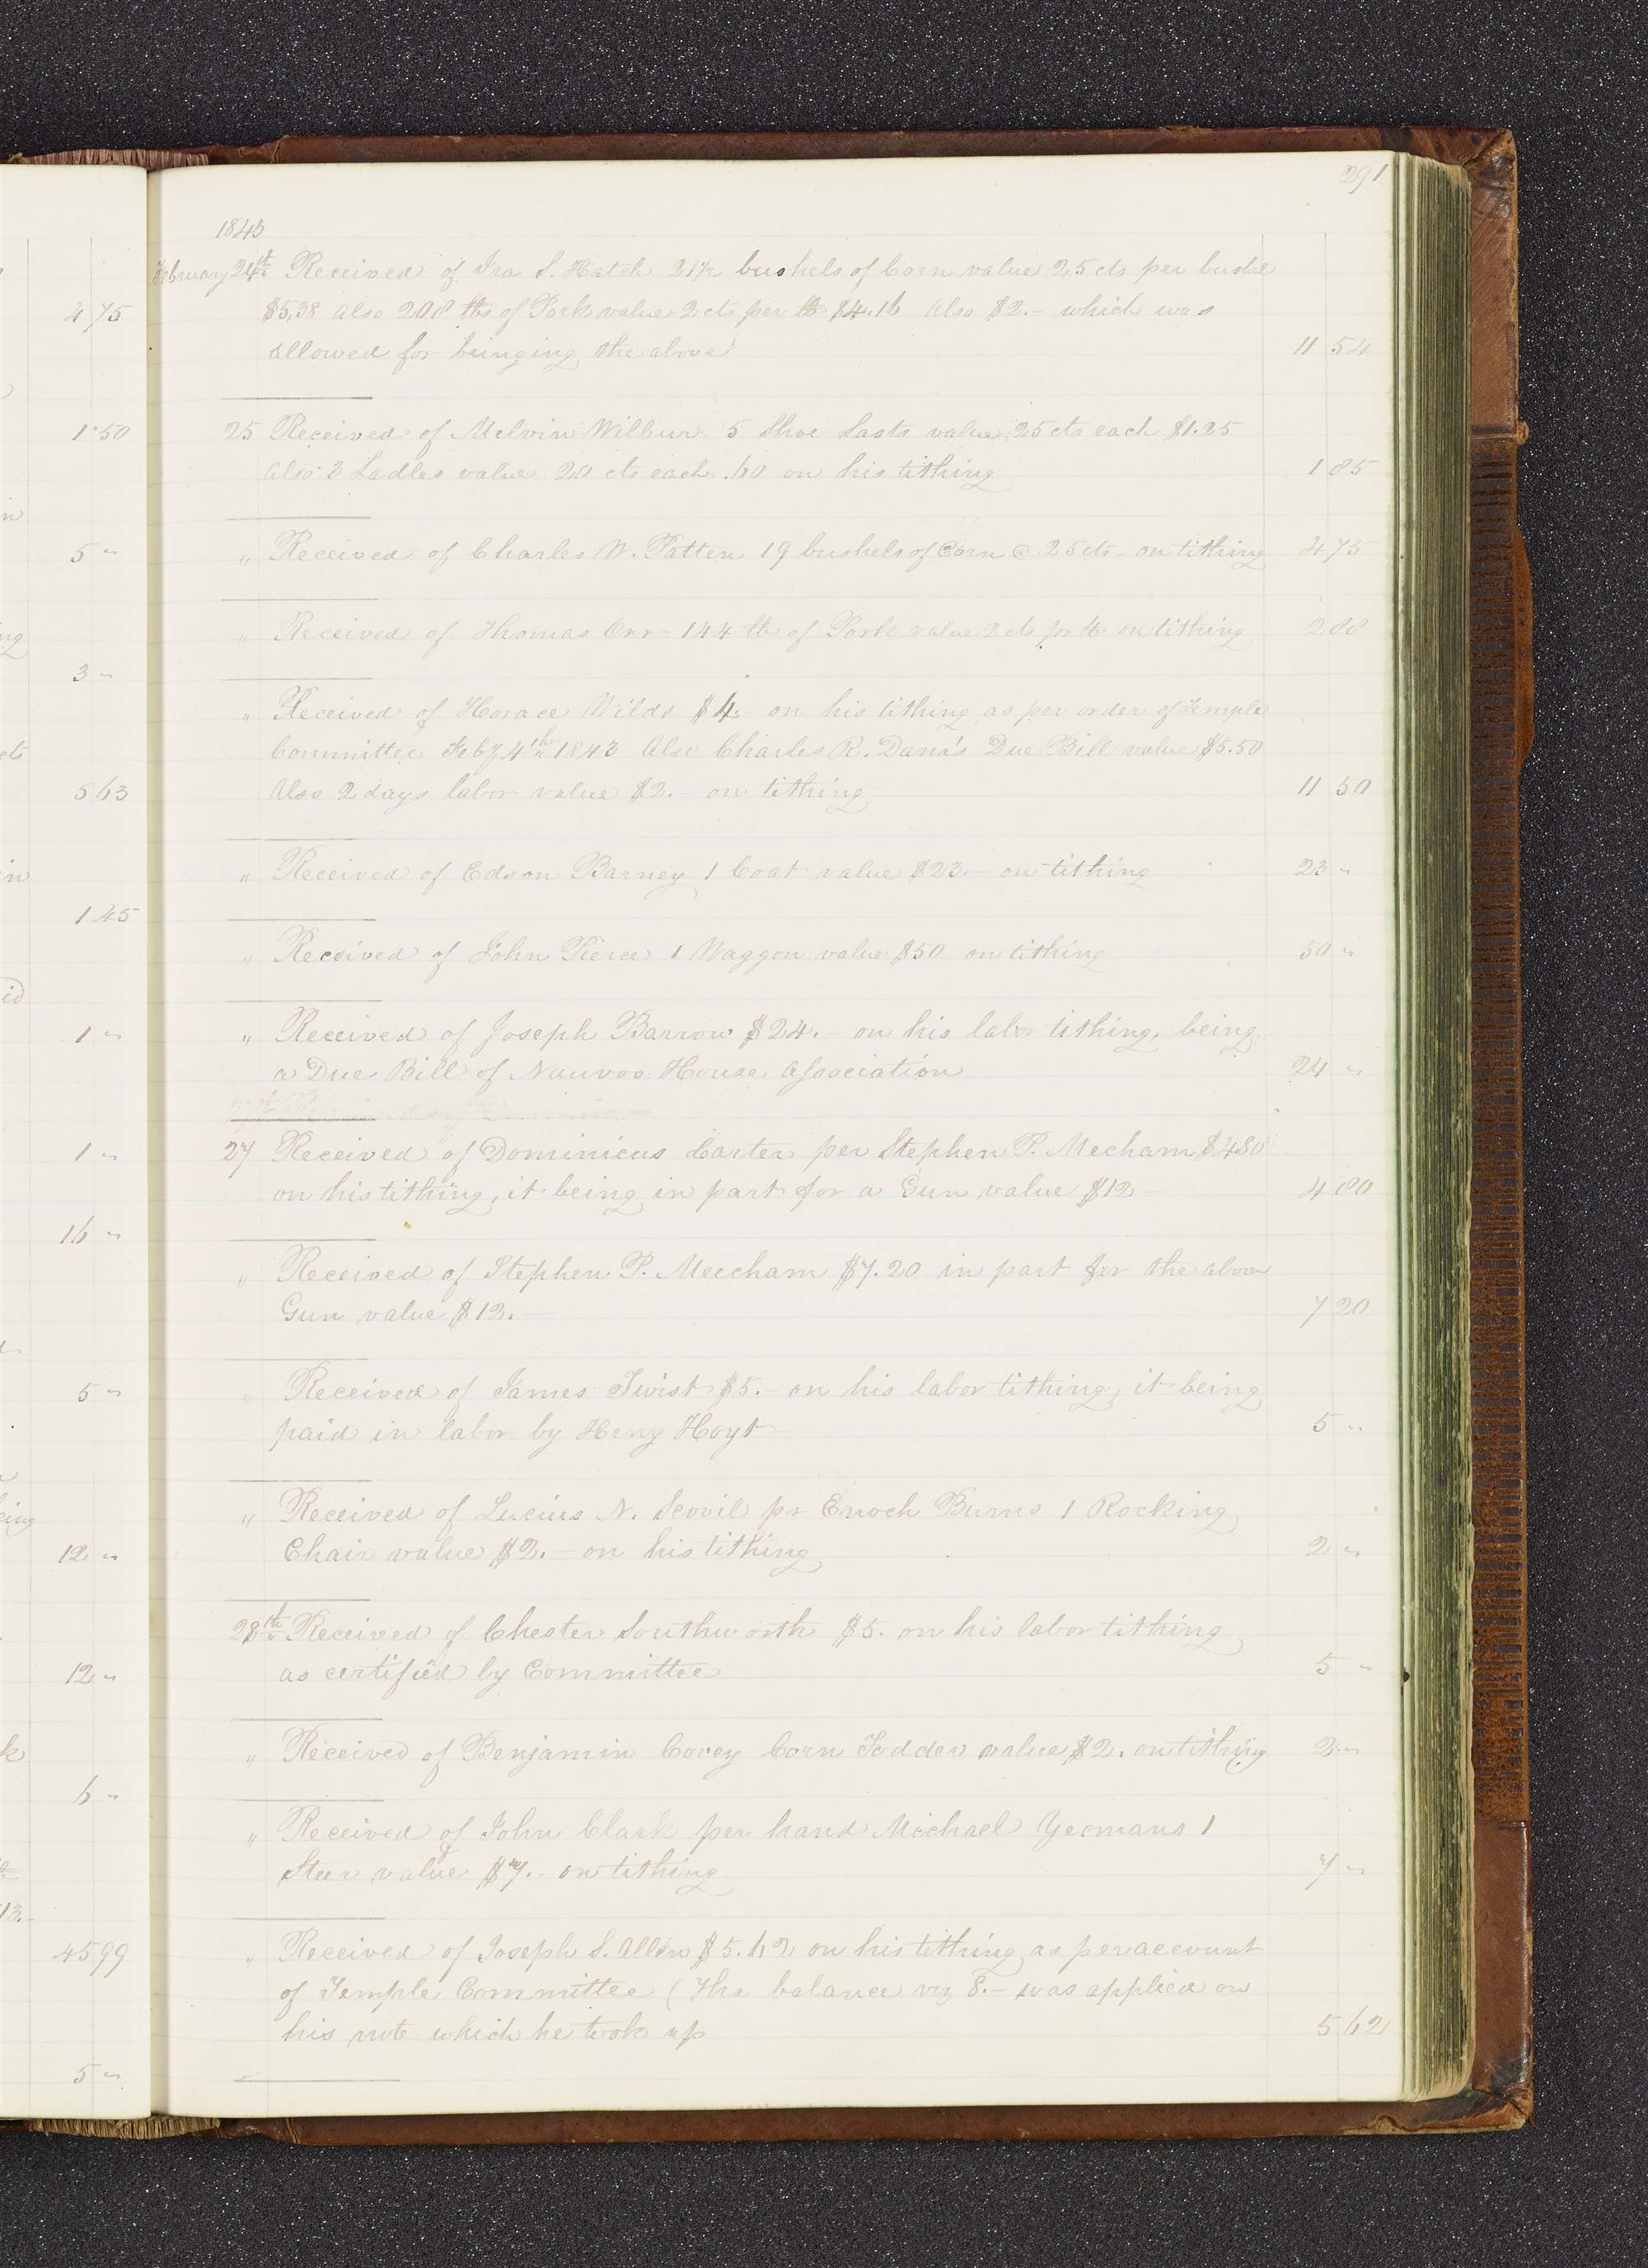 291
1843
February 24th Received of Ira S. Hatch 21 1/2 bushels of Corn value 25 cts per bushel
$5,38 also 208 lbs of Pork value 2 cts per lb $4.16 Also $2.- which was
allowed for bringing the above 11 54
25 Received of Melvin Wilbur 5 Shoe Lasts value 25 cts each $1.25
also 3 Ladles value 20 cts each .60 on his tithing 1 85
" Received of Charles W. Patten 19 bushels of Corn @ 25 cts on tithing 4 75
" Received of Thomas Orr - 144 lbs of Pork value 2 cts pr lb on tithing 2 88
" Received of Horace Wilds $4.- on his tithing as per order of Temple
Committee Feby 4th 1843 Also Charles R. Dana's Due Bill value $5.50
Also 2 days labor value $2.- on tithing 11 50
" Received of Edson Barney 1 Coat value $23.- on tithing 23 "
" Received of John Pierce 1 Waggon value $50 on tithing 50 "
" Received of Joseph Barrow $24.- on his labor tithing, being
a Due Bill of Nauvoo House Association 24 "
27 Received of Dominicus Carter per Stephen P. Mecham $480
on his tithing, it being in part for a Gun value $12 4 80
" Received of Stephen P. Meecham $7.20 in part for the above
Gun value $12.- 7 20
" Received of James Twist $5.- on his labor tithing, it being
paid in labor by Heny Hoyt 5 "
" Received of Lucius N. Scovil pr Enoch Burns 1 Rocking
Chair value $2.- on his tithing 2 "
28th Received of Chester Southworth $5. on his labor tithing
as certified by Committee 5 "
" Received of Benjamin Covey Corn Fodder value $2. on tithing 2 "
" Received of John Clark per hand Michael Yeomans 1
Steer value $7.- on tithing 7 "
" Received of Joseph S. Allen $5.62 on his tithing as per account
of Temple Committee (The balance viz 8.- was applied on
his note which he took up 5 62
4 75
1 50
5 "
3 "
cts
5 63
1 45
1 "
1 "
16 "
5 "
12 "
12 "
6 "
13.-
45 99
5 "